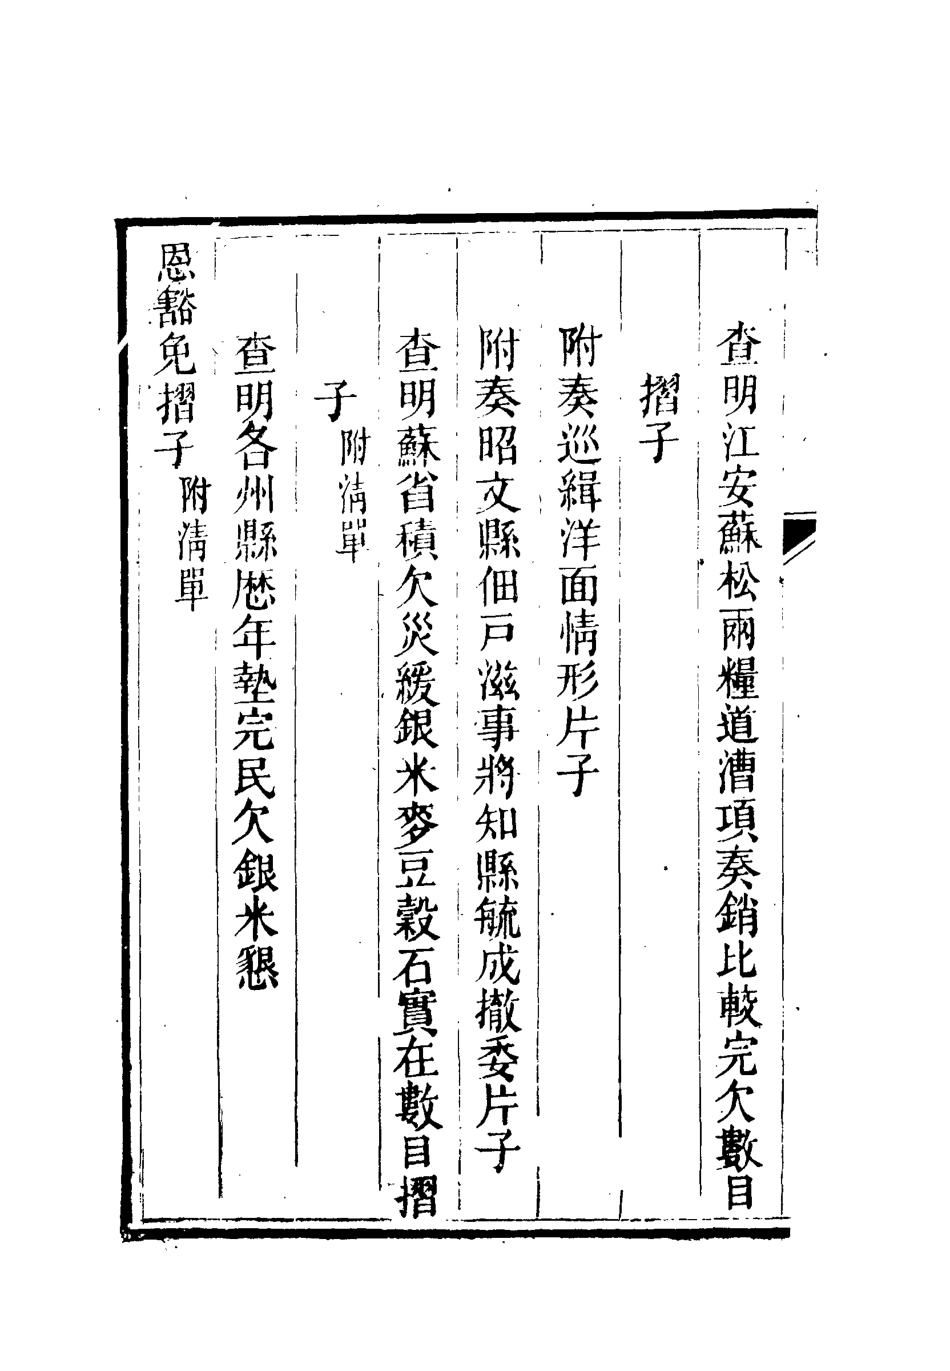 查明江安蘇松兩糧道漕項奏銷比較完欠數目
摺子
附奏巡緝洋面情形片子
附奏昭文縣佃戸滋事將知縣毓成撤委片子
查明蘇省積欠災緩銀米麥豆穀石實在數目摺
子附淸單
查明各州縣歷年墊完民欠銀米懇
恩豁免摺子附淸單